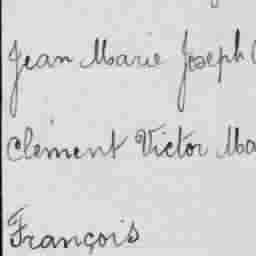 Jean Marie Joseph
Clément Victor Ma
François